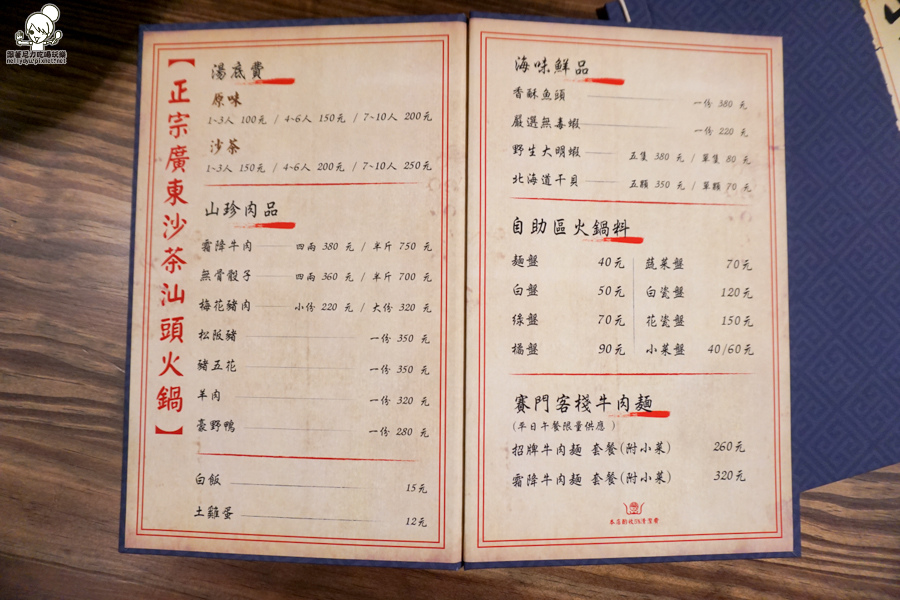 【正宗廣東沙茶汕頭火鍋】
湯底費
原味
1~3人 100元 / 4~6人 150元 / 7~10人 200元
沙茶
1~3人 150元 / 4~6人 200元 / 7~10人 250元
山珍肉品
霜降牛肉 四兩 380 元 / 半斤 750 元
無骨骰子 四兩 360 元 / 半斤 700 元
梅花豬肉 小份 220 元 / 大份 320 元
松阪豬 一份 350 元
豬五花 一份 350 元
羊肉 一份 320 元
豪野鴨 一份 280 元
白飯 15元
土雞蛋 12元
海味鮮品
香酥魚頭 一份 380 元
嚴選無毒蝦 一份 220 元
野生大明蝦 五隻 380 元 / 單隻 80 元
北海道干貝 五顆 350 元 / 單顆 70 元
自助區火鍋料
麵盤 40元
白盤 50元
綠盤 70元
橘盤 90元
蔬菜盤 70元
白瓷盤 120元
花瓷盤 150元
小菜盤 40/60元
賽門客棧牛肉麵
(平日午餐限量供應)
招牌牛肉麵 套餐(附小菜) 260元
霜降牛肉麵 套餐(附小菜) 320元
本店酌收10%清潔費
跟著尼力吃喝玩樂